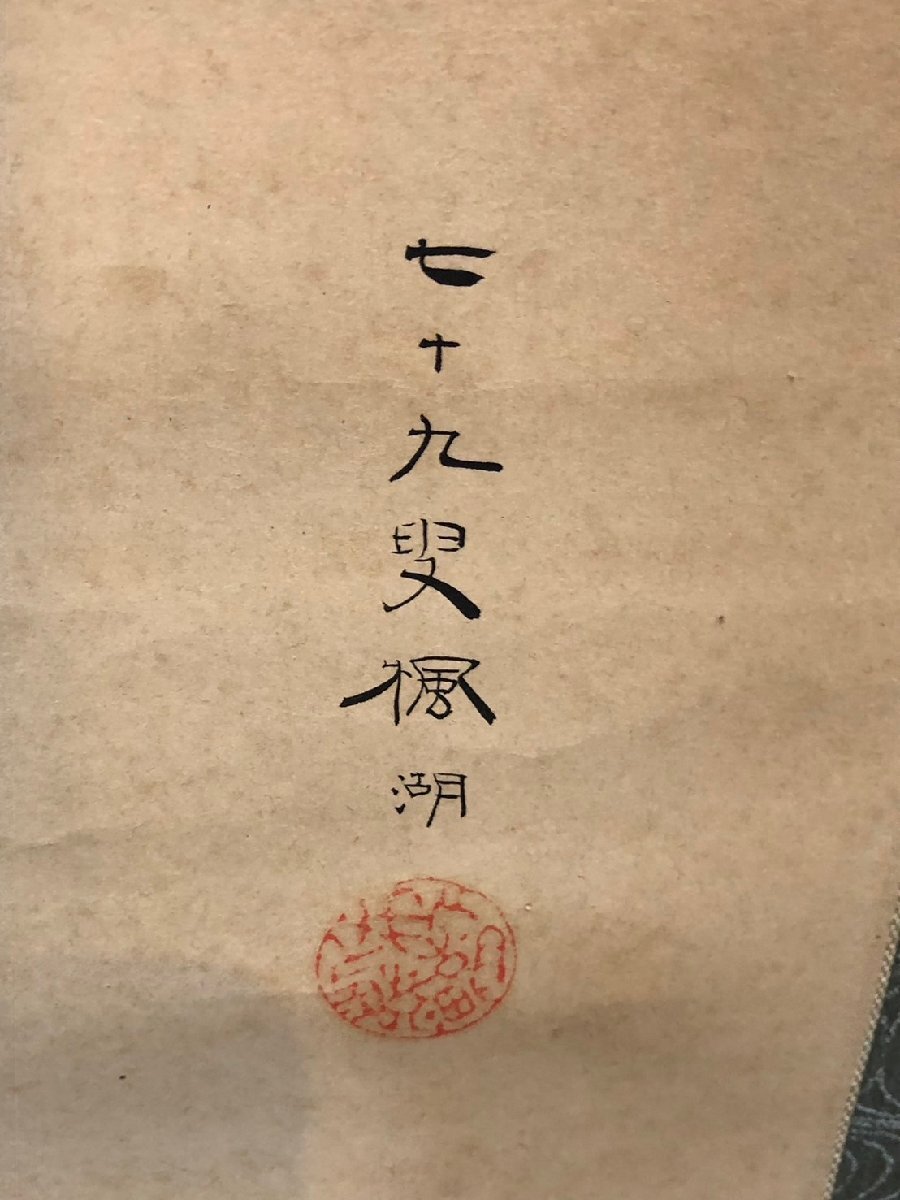 七十九叟楓湖